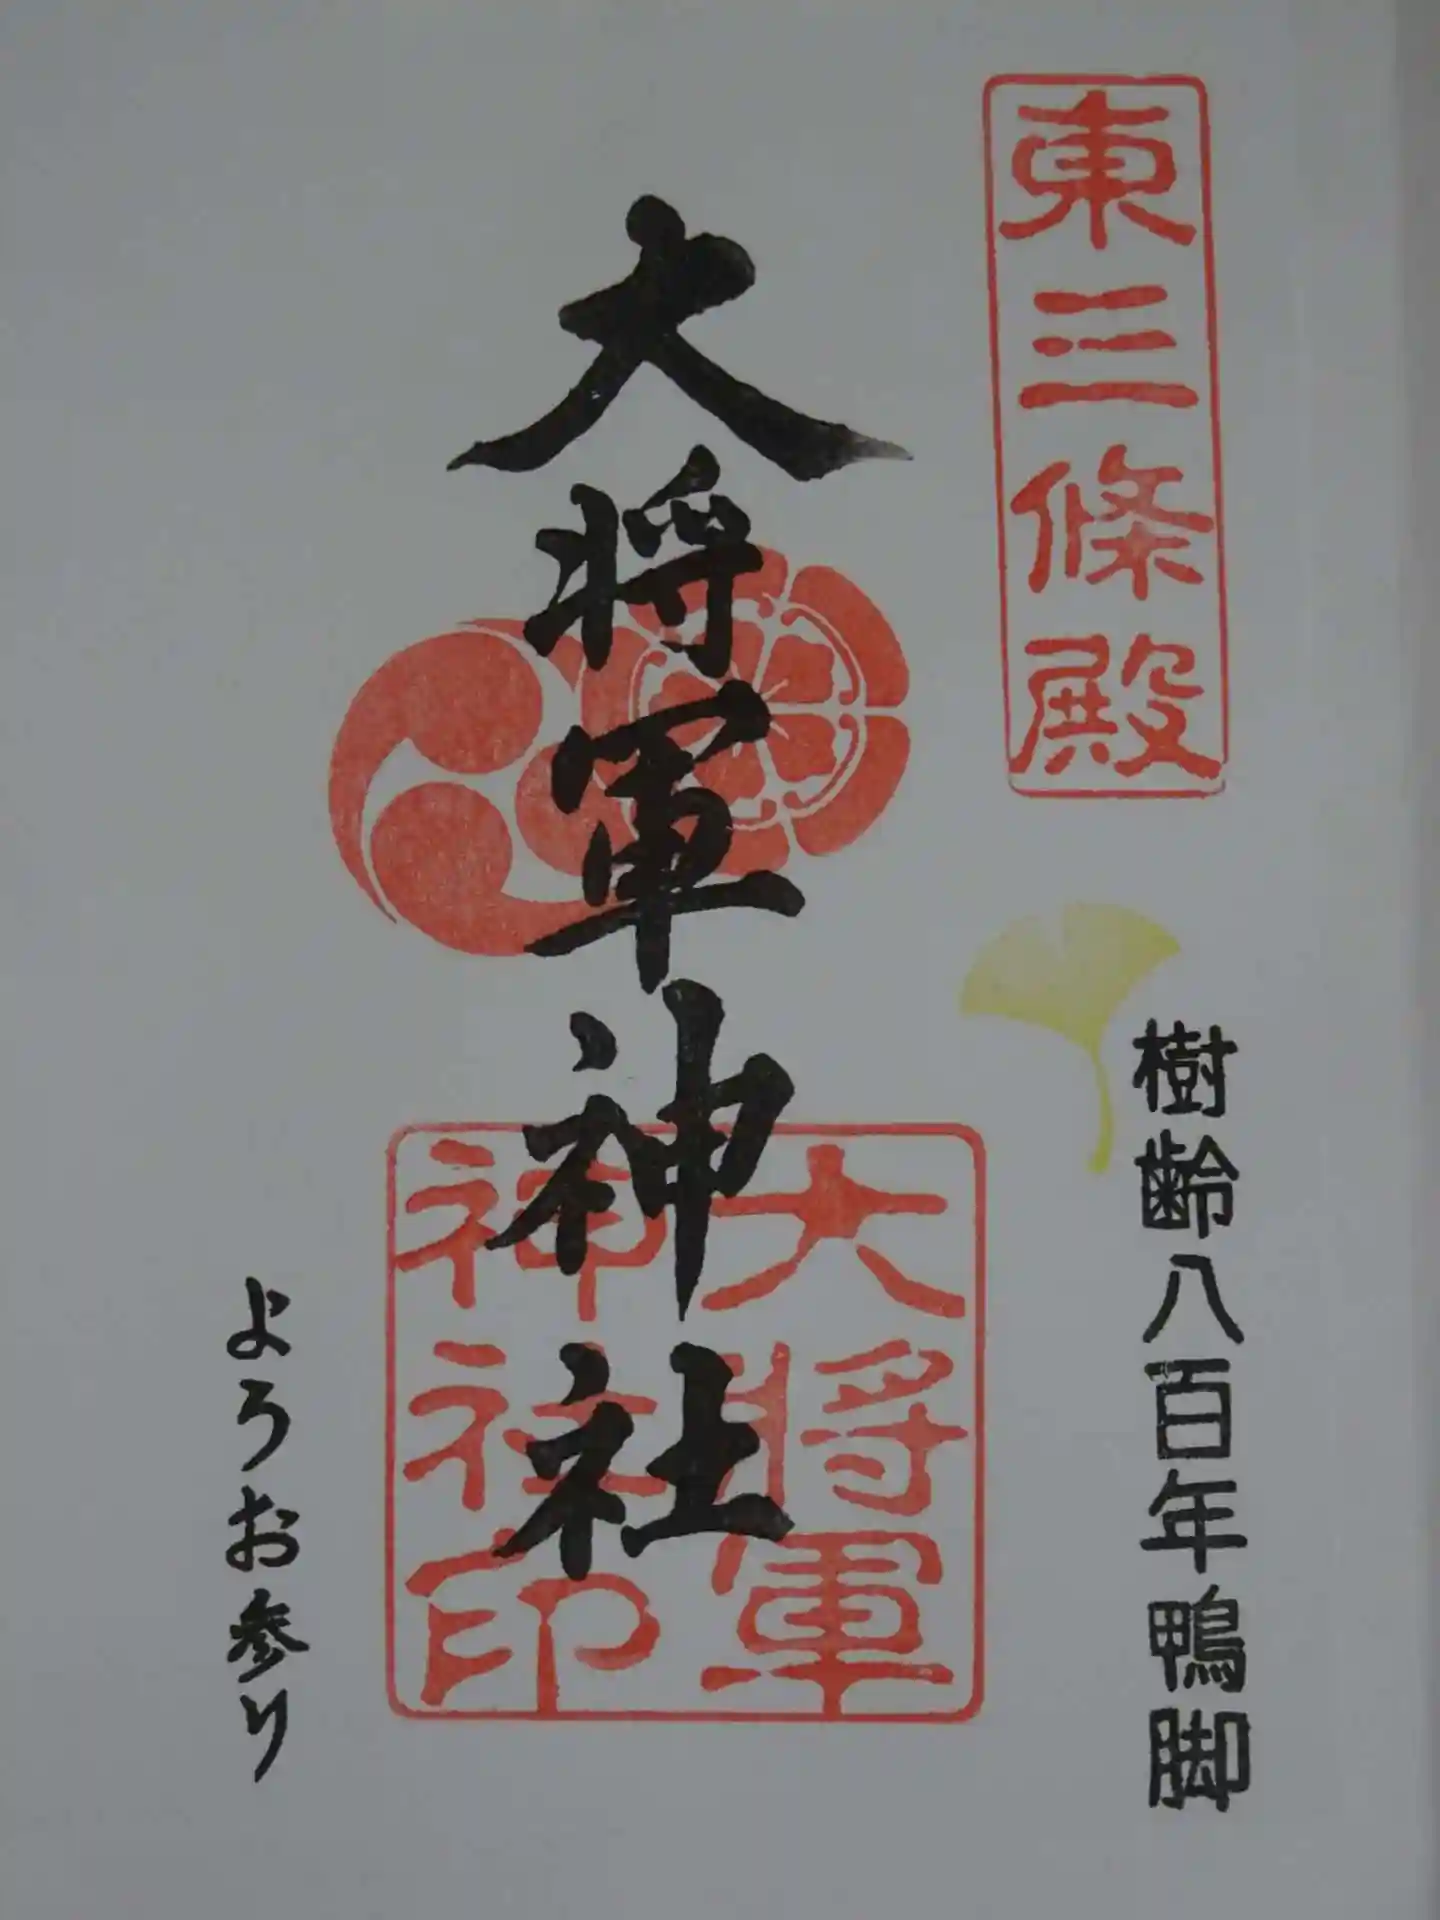 東三條殿
樹齢八百年鴨脚
大将軍神社
大将軍
神社印
よろお参り